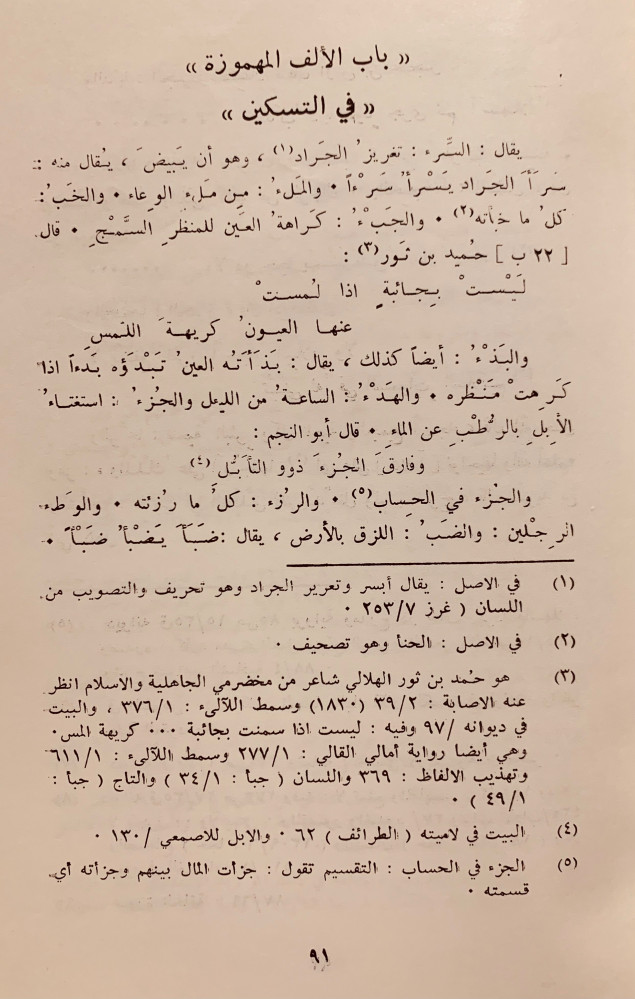 « باب الألف المهموزة »
« في التسكين »
يقال : السَّرء : تغريزُ الجَراد(١) ، وهو أن يَبيضَ ، يُقال منه :
سَرَأَ الجراد يَسْرأُ سَرْءاً • والمَلءُ : مِن مَلءِ الوِعاء • والخَبْءُ :
كلُ ما خبأته(٢) • والجَبْءُ : كَراهةُ العَين للمنظرِ السَّمْجِ • قال
[ ٢٢ ب ] حُميد بن ثَور(٣) :
لَيْسْتْ بِجائبةٍ اذا لُمستْ
عنها العيونُ كريهةَ اللّمسِ
والبَذْءُ : أيضاً كذلك ، يقال : بَذَأَتْه العينُ تَبْذَؤه بَذءاً اذا
كَرِهتْ مَنْظره • والهَدْءُ : الساعةُ من الليل والجُزءُ : استغناءُ
الأبِلِ بالرُّطْبِ عن الماءِ • قال أبو النجم :
وفارقَ الجُزءَ ذوو التأبُّل(٤)
والجُزء في الحِساب(٥) • والرُزء : كلُّ ما رُزئته • والوَطء
الرِجْلين : والضَبْءُ : اللزق بالأرض ، يقال :ضَبَأَ يَضْبأُ ضَبْأً •
(١) في الاصل : يقال أيسر وتعرير الجراد وهو تحريف والتصويب من
اللسان ( غرز ٢٥٣/٧ •
(٢) في الاصل : الحنأ وهو تصحيف •
(٣) هو حُمد بن ثور الهلالي شاعر من مخضرمي الجاهلية والاسلام انظر
عنه الاصابة : ٣٩/٢ (١٨٣٠) وسمط اللآلىء : ٣٧٦/١ ، والبيت
في ديوانه /٩٧ وفيه : ليست اذا سمنت بجائبة ••• كريهة المس•
وهي أيضا رواية أمالي القالي : ٢٧٧/١ وسمط اللآلىء : ٦١١/١
وتهذيب الالفاظ : ٣٦٩ واللسان ( جبأ : ٣٤/١ ) والتاج ( جبأ :
٤٩/١ ) •
(٤) البيت في لاميته ( الطرائف ) ٦٢ • والابل للاصمعي /١٣٠ •
(٥) الجزء في الحساب : التقسيم تقول : جزأت المال بينهم وجزأته أي
قسمته •
٩١